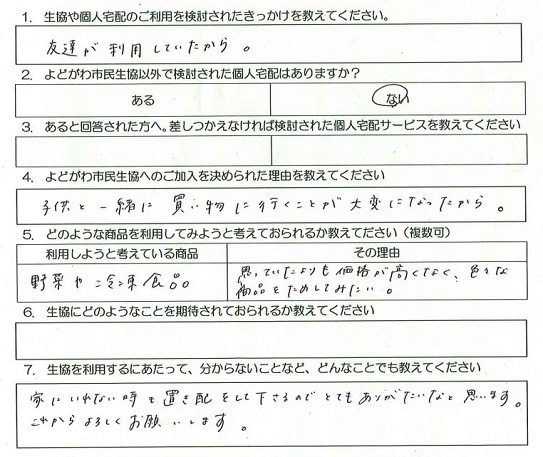 1. 生協や個人宅配のご利用を検討されたきっかけを教えてください。
友達が利用していたから。
2. よどがわ市民生協以外で検討された個人宅配はありますか？
ある ない
3. あると回答された方へ。差しつかえなければ検討された個人宅配サービスを教えてください
4. よどがわ市民生協へのご加入を決められた理由を教えてください
子供と一緒に買い物に行くことが大変になったから。
5. どのような商品を利用してみようと考えておられるか教えてください（複数可）
利用しようと考えている商品 その理由
野菜や冷凍食品 思っていたよりも価格が高くなく、色々な
商品をためしてみたい。
6. 生協にどのようなことを期待されておられるか教えてください
7. 生協を利用するにあたって、分からないことなど、どんなことでも教えてください
家にいれない時も置き配をして下さるのでとてもありがたいなと思います。
これからよろしくお願いします。